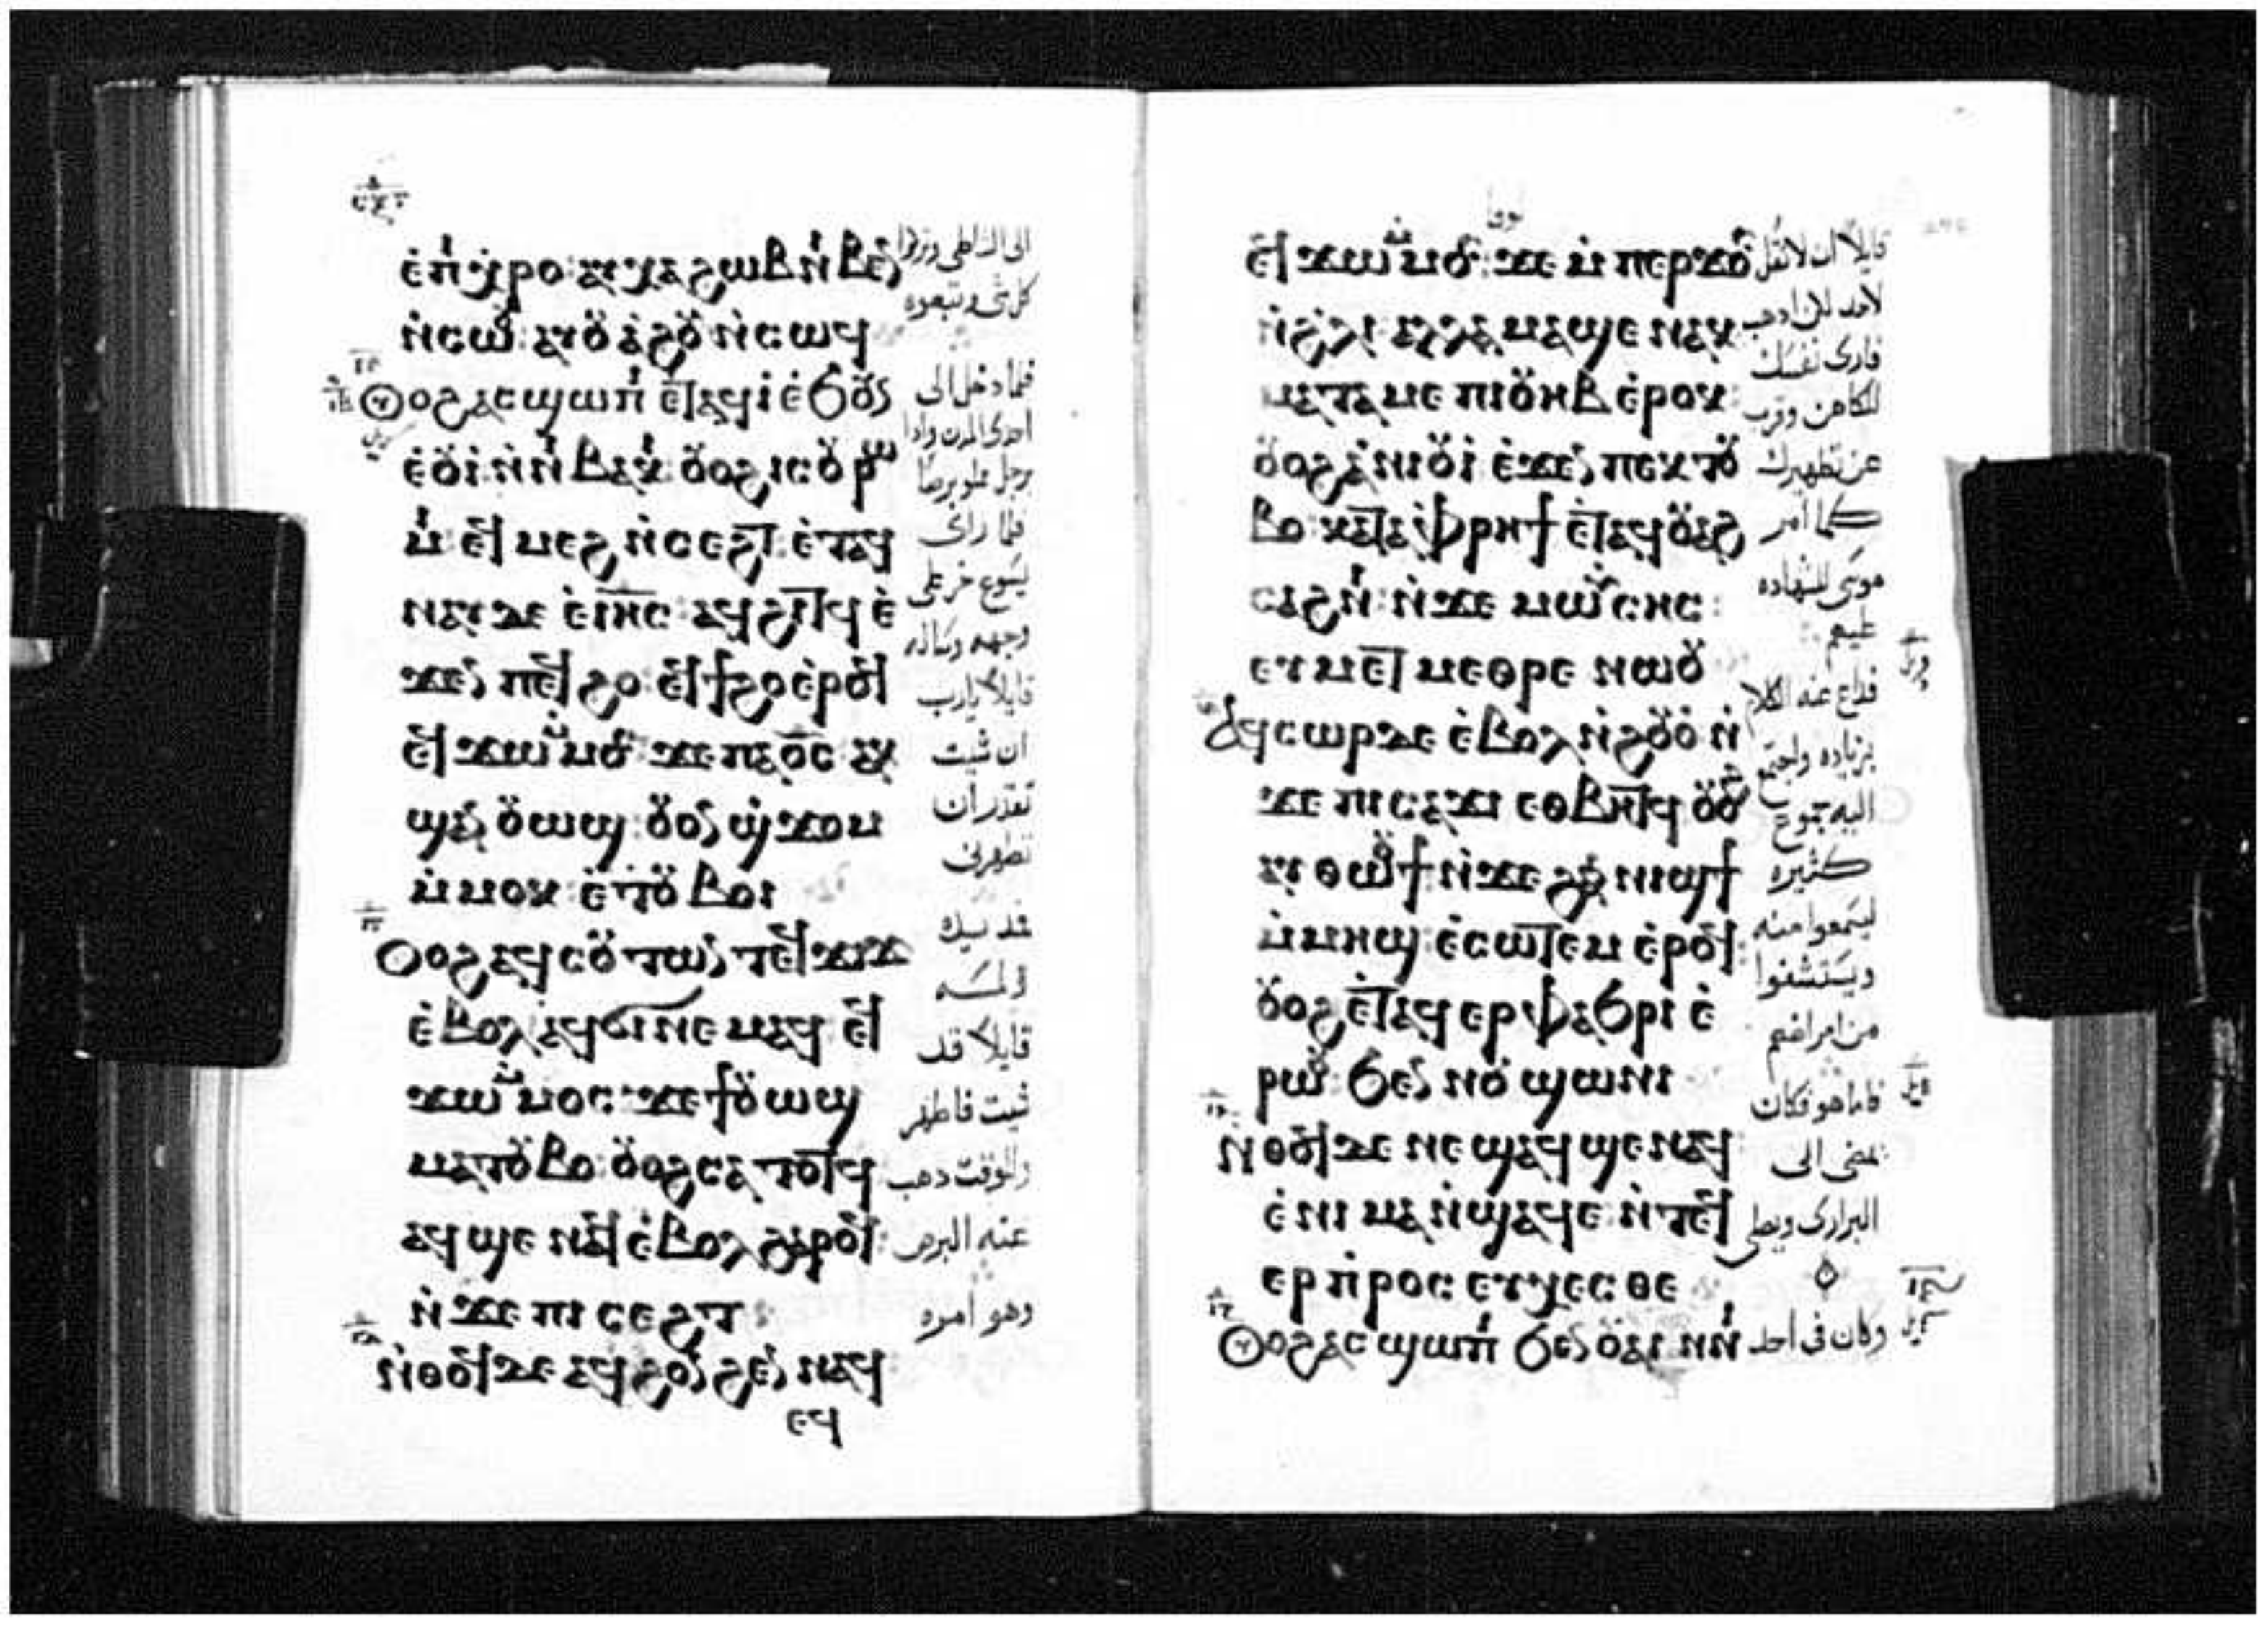 ⲉ̇ⲡⲓⲭⲣⲟ: ⲁⲩⲭⲁ ϩⲱⲃ ⲛⲓⲃⲉⲛ
ⲛ̇ⲥⲱⲟⲩ: ⲁⲩⲟⲩⲁ̇ϩⲟⲩ ⲛ̇ⲥⲱϥ
ⲟⲩⲟϩ ⲁⲥϣⲱⲡⲓ ⲉⲧⲁϥⲓ̇ ⲉ̇ϧⲟⲩⲛ
ⲉ̇ⲟⲩⲓ̇ ⲛ̇ⲛⲓⲃⲁⲕⲓ: ⲟⲩⲟϩ ⲓⲥ ⲟⲩⲣⲱ
ⲙⲓ ⲉϥⲙⲉϩ ⲛ̇ⲥⲉϩⲧ: ⲉ̇ⲧⲁϥ
ⲛⲁⲩ ⲇⲉ ⲉ̇ⲓⲏⲥ: ⲁϥϩⲓⲧϥ ⲉ̇
ϫⲉⲛ ⲡⲉϥϩⲟ: ⲉϥϯϩⲟ ⲉ̇ⲣⲟϥ
ⲉϥϫⲱ ⲙⲙⲟⲥ: ϫⲉ ⲡⲁⲟ̅ⲥ̅ ⲁⲕ
ϣⲁⲛⲟⲩⲱϣ: ⲟⲩⲟⲛ ϣϫⲟⲙ
ⲙ̇ⲙⲟⲕ: ⲉ̇ⲧⲟⲩⲃⲟⲓ
ⲟⲩⲟϩ ⲁϥⲥⲟⲩⲧⲱⲛ ⲧⲉϥϫⲓϫ
ⲉ̇ⲃⲟⲗ: ⲁϥϭⲓ ⲛⲉⲙⲁϥ: ⲉϥ
ϫⲱ ⲙⲙⲟⲥ: ϫⲉ ϯⲟⲩⲱϣ
ⲙⲁⲧⲟⲩⲃⲟ: ⲟⲩⲟϩ ⲥⲁⲧⲟⲧϥ
ⲁϥϣⲉ ⲛⲁϥ ⲉ̇ⲃⲟⲗ ϩⲁⲣⲟϥ:
ⲛ̇ϫⲉ ⲡⲓⲥⲉϩⲧ:
ⲛ̇ⲑⲟϥ ⲇⲉ ⲁϥϩⲟⲛϩⲉⲛ ⲛⲁϥ:
ⲉϥ
كل شى وتبعوه
فلما دخل الى
احدى المدن واذا
برجل مملو برصا
فلما راى
يسوع خر على
قايلا يارب
ان شيت
تقدر ان
تطهرنى
قايلا قد
شيت فاطهر
وللوقت دهب
عنه البرص
وهو امره
لوقا
ⲉϥϫⲱ ⲙⲙⲟⲥ: ϫⲉ ⲙ̇ⲡⲉⲣϫⲟⲥ
ⲛ̇ϩⲗⲓ: ⲁⲗⲗⲁ ⲙⲁϣⲉ ⲛⲁⲕ
ⲙⲁⲧⲁⲙⲉ ⲡⲓⲟⲩⲏⲃ ⲉ̇ⲣⲟⲕ:
ⲟⲩⲟϩ ⲁ̇ⲛⲓⲟⲩⲓ̇ ⲉ̇ϫⲉⲛ ⲡⲉⲕⲧⲟⲩ
ⲃⲟ: ⲕⲁⲧⲁ ⲫⲣⲏϯ ⲉ̇ⲧⲁϥⲟⲩⲁϩ
ⲥⲁϩⲛⲓ: ⲛ̇ϫⲉ ⲙⲱⲩⲥⲏⲥ:
ⲉⲩⲙⲉⲧⲙⲉⲑⲣⲉ ⲛⲱⲟⲩ
ⲁϥⲥⲱⲣ ⲇⲉ ⲉ̇ⲃⲟⲗ ⲛ̇ϩⲟⲩⲟ̇ ⲛ̇
ϫⲉ ⲡⲓⲥⲁϫⲓ ⲉⲑⲃⲏⲧϥ ⲟⲩⲟϩ
ⲛⲁⲩⲑⲱⲟⲩϯ ⲛ̇ϫⲉ ϩⲁⲛⲛⲓϣϯ
ⲙ̇ⲙⲏϣ ⲉ̇ⲥⲱⲧⲉⲙ ⲉ̇ⲣⲟϥ:
ⲟⲩⲟϩ ⲉ̇ⲧⲁϥⲉⲣⲫⲁϧⲣⲓ ⲉ̇
ⲣⲱⲟⲩ: ϧⲉⲛ ⲛⲟⲩϣⲱⲛⲓ
ⲛ̇ⲑⲟϥ ⲇⲉ ⲛⲉ ϣⲁϥϣⲉ ⲛⲁϥ:
ⲉ̇ⲛⲓⲙⲁ ⲛ̇ϣⲁϥⲉ: ⲛ̇ⲧⲉϥ
ⲉⲣⲡⲣⲟⲥⲉⲩⲭⲉⲥⲑⲉ
ⲟⲩⲟϩ ⲁⲥϣⲱⲡⲓ ϧⲉⲛ ⲟⲩⲁⲓ ⲛⲛⲓ
قايلا ان لا تقل
لاحد لكن ادهب
فارى نفسك
للكاهن وقرب
عن تطهيرك
كما امر
موسى للشهاده
عليهم
فداع عنه الكلام
بزياده واجتمع
اليه جموع
كثيره
ليسمعوا منه
ويستشفوا
من امراضهم
فاما هو فكان
يمضى الى
البرارى ويصلى
وكان فى احد